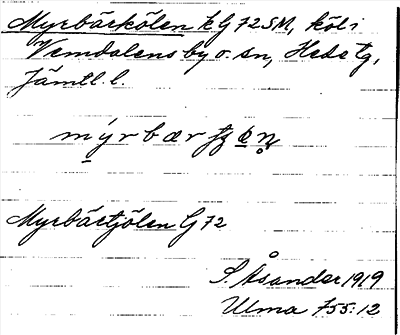 Myrbäckölen k G 72 SM, köl i
Vemdalens by o. sn, Hede tg,
Jämtl l.
Myrbäctjölen G 72
S. Åsander 1919
Ulma 755:12